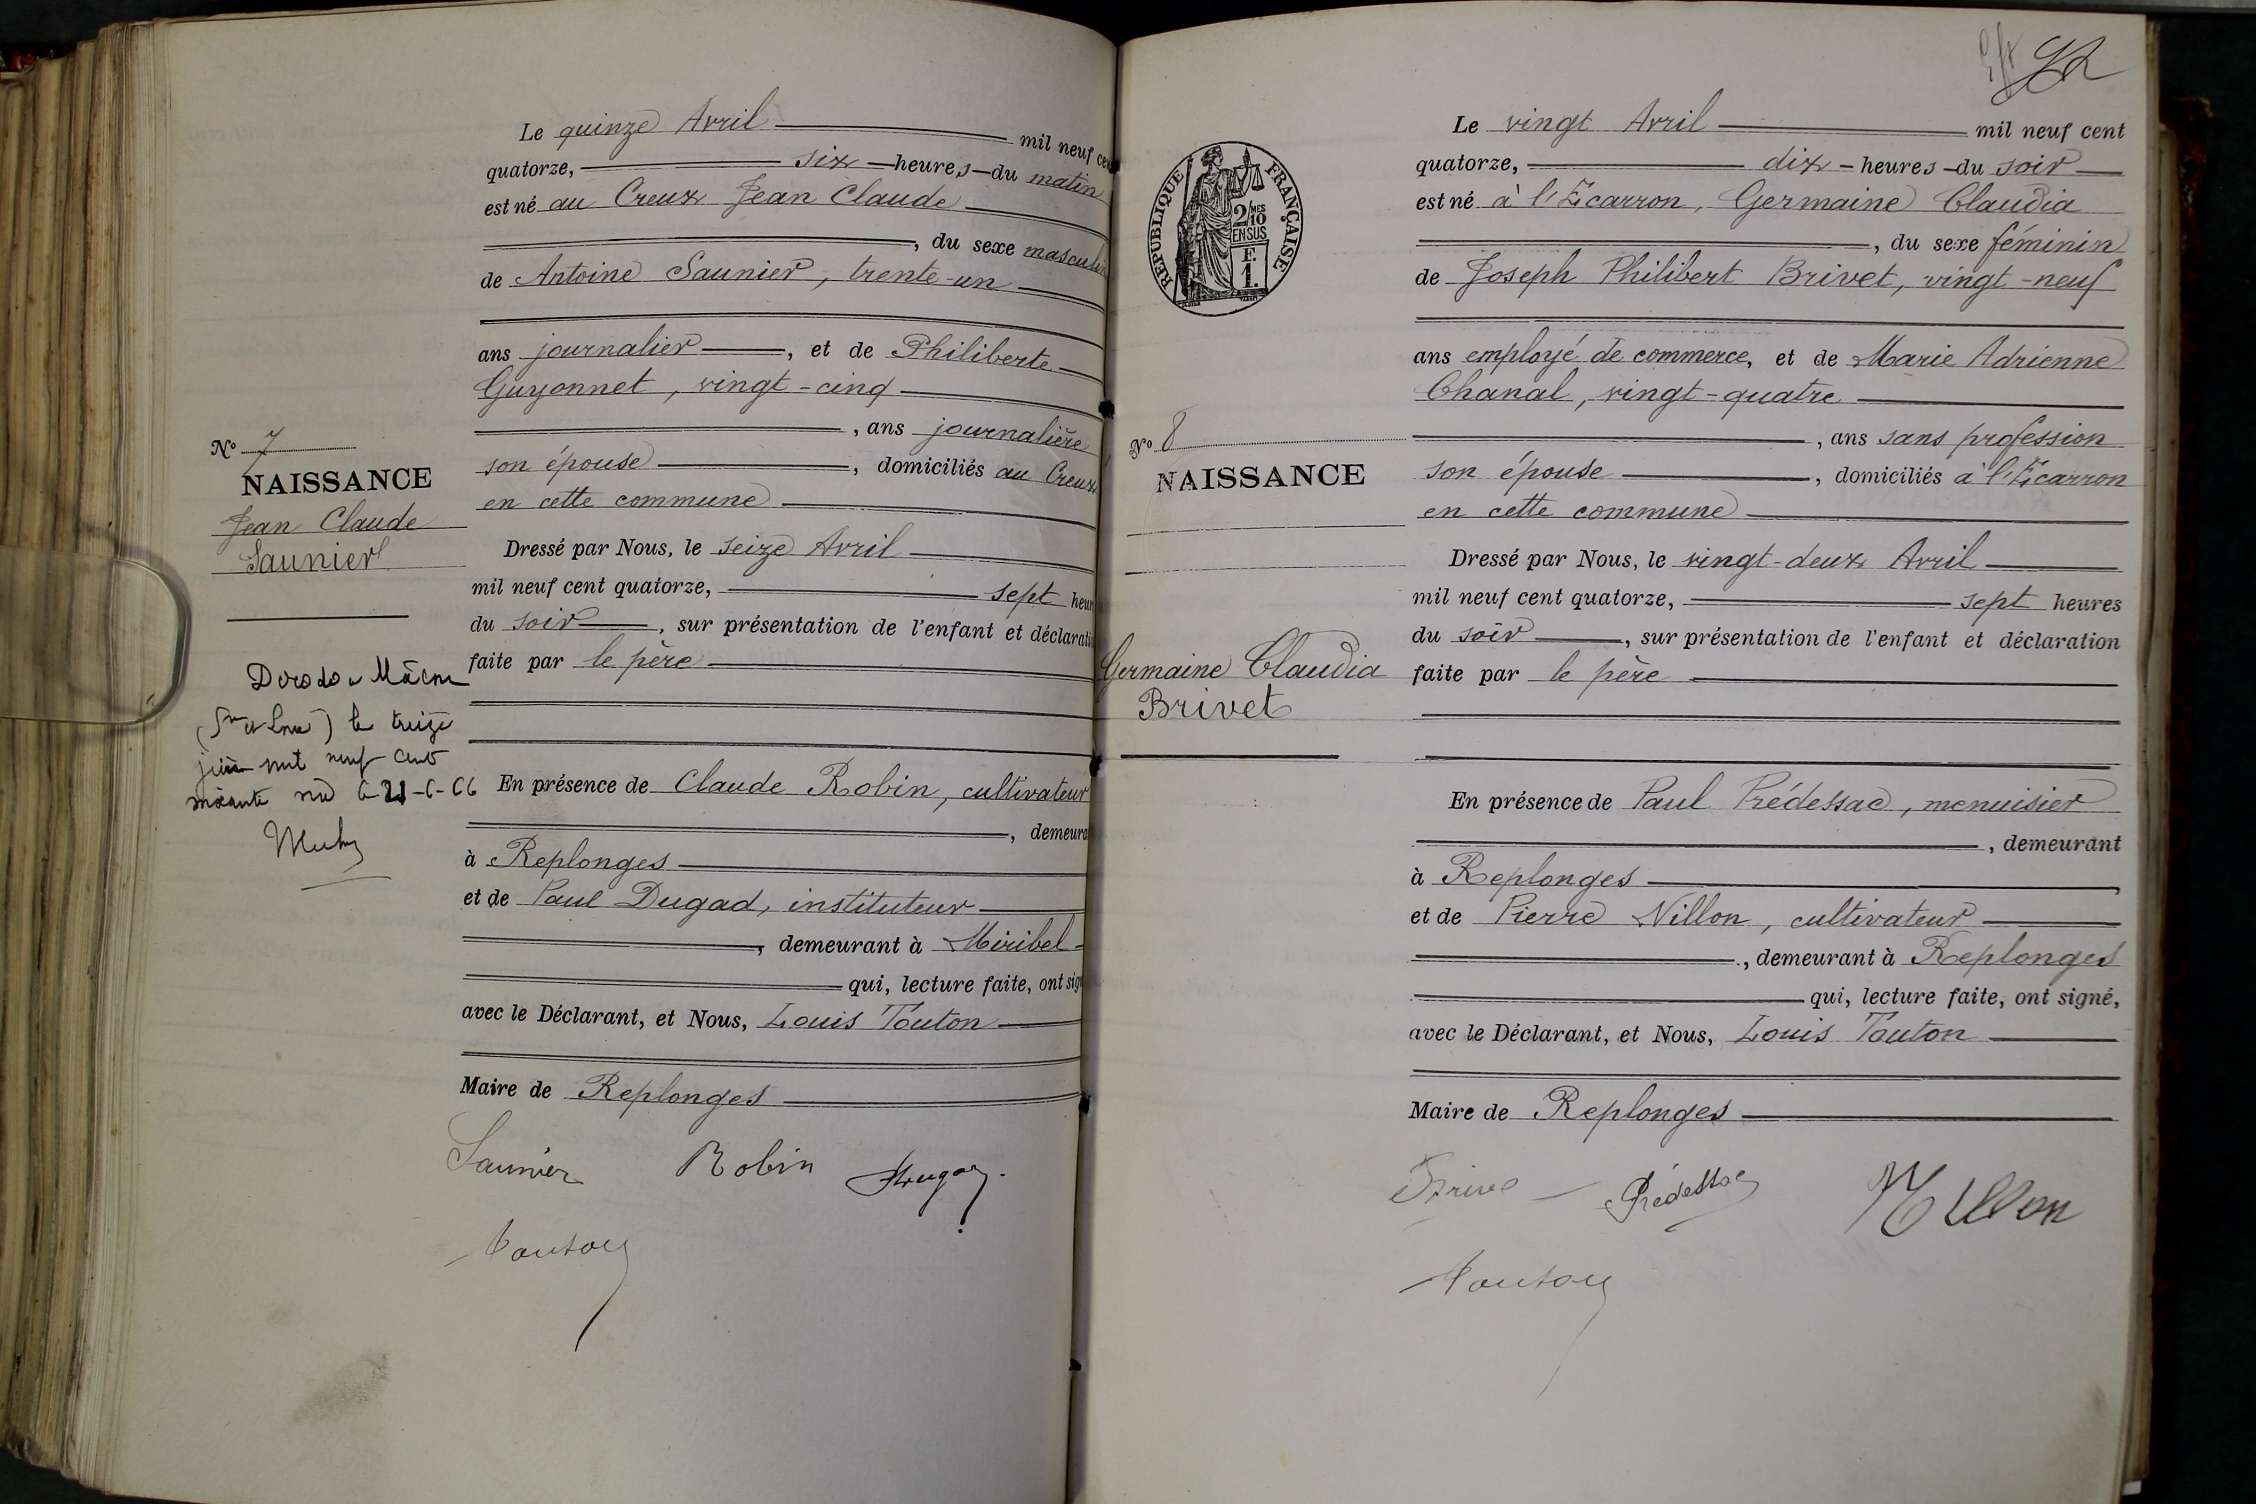 Le quinze Avril mil neuf cent
quatorze, six heures du matin
est né au Creux Jean Claude
, du sexe masculin
de Antoine Saunier, trente-un
ans journalier, et de Philiberte
Guyonnet, vingt-cinq
, ans journalière
son épouse, domiciliés au Creux
en cette commune
Dressé par Nous, le seize Avril
mil neuf cent quatorze, sept heur
du soir, sur présentation de l'enfant et déclarati
faite par le père
En présence de Claude Robin, cultivateur
, demeura
à Replonges
et de Paul Dugad, instituteur
, demeurant à Miribel
qui, lecture faite, ont sig
avec le Déclarant, et Nous, Louis Touton
Maire de Replonges
Saunier Robin
Touton
N° 7
NAISSANCE
Jean Claude
Saunier
Mâcon
le treize
juin mil neuf cent
21-6-66
92
Le vingt Avril mil neuf cent
quatorze, dix heures du soir
est né à l'Ecarron, Germaine Claudia
, du sexe féminin
de Joseph Philibert Brivet, vingt-neuf
ans employé de commerce, et de Marie Adrienne
Chanal, vingt-quatre
, ans sans profession
son épouse, domiciliés à l'Ecarron
en cette commune
Dressé par Nous, le vingt-deux Avril
mil neuf cent quatorze, sept heures
du soir, sur présentation de l'enfant et déclaration
faite par le père
En présence de Paul Prédessac, menuisier
, demeurant
à Replonges
et de Pierre Nillon, cultivateur
, demeurant à Replonges
qui, lecture faite, ont signé,
avec le Déclarant, et Nous, Louis Touton
Maire de Replonges
Prédessac Nillon
Touton
RÉPUBLIQUE FRANÇAISE
2/10 MES
EN SUS
F.
1.
N° 8
NAISSANCE
Germaine Claudia
Brivet